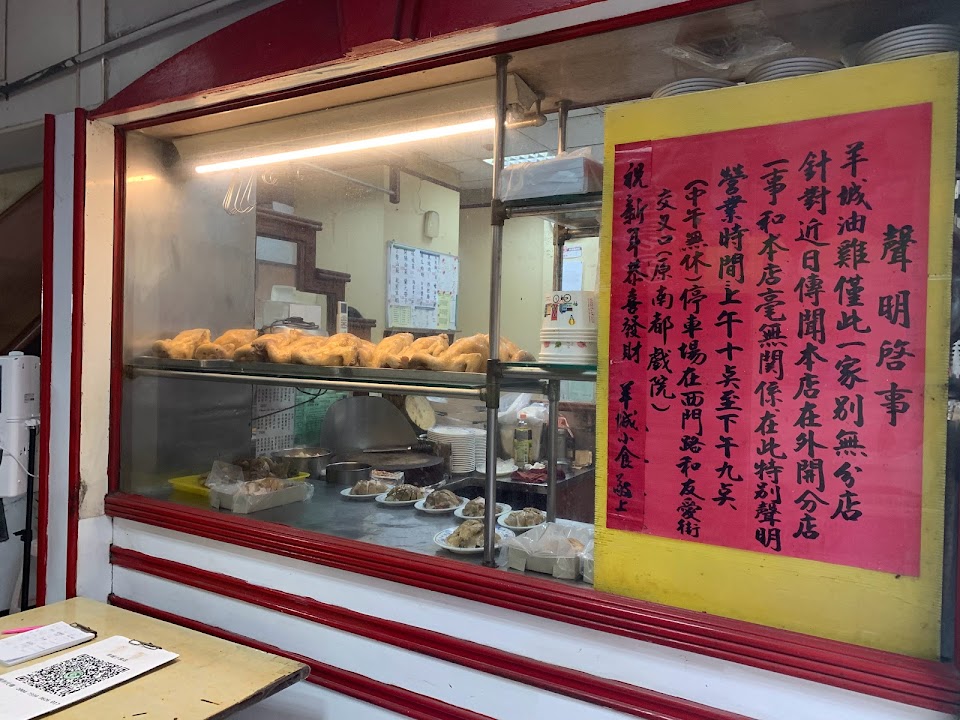 聲明啓事
羊城油雞僅此一家別無分店
針對近日傳聞本店在外開分店
一事和本店毫無関係在此特别聲明
營業時間上午十点至下午九点
(中午無休)停車場在西門路和友愛街
交叉口(原南都戲院)
祝新年恭喜發財 羊城小食 敬上